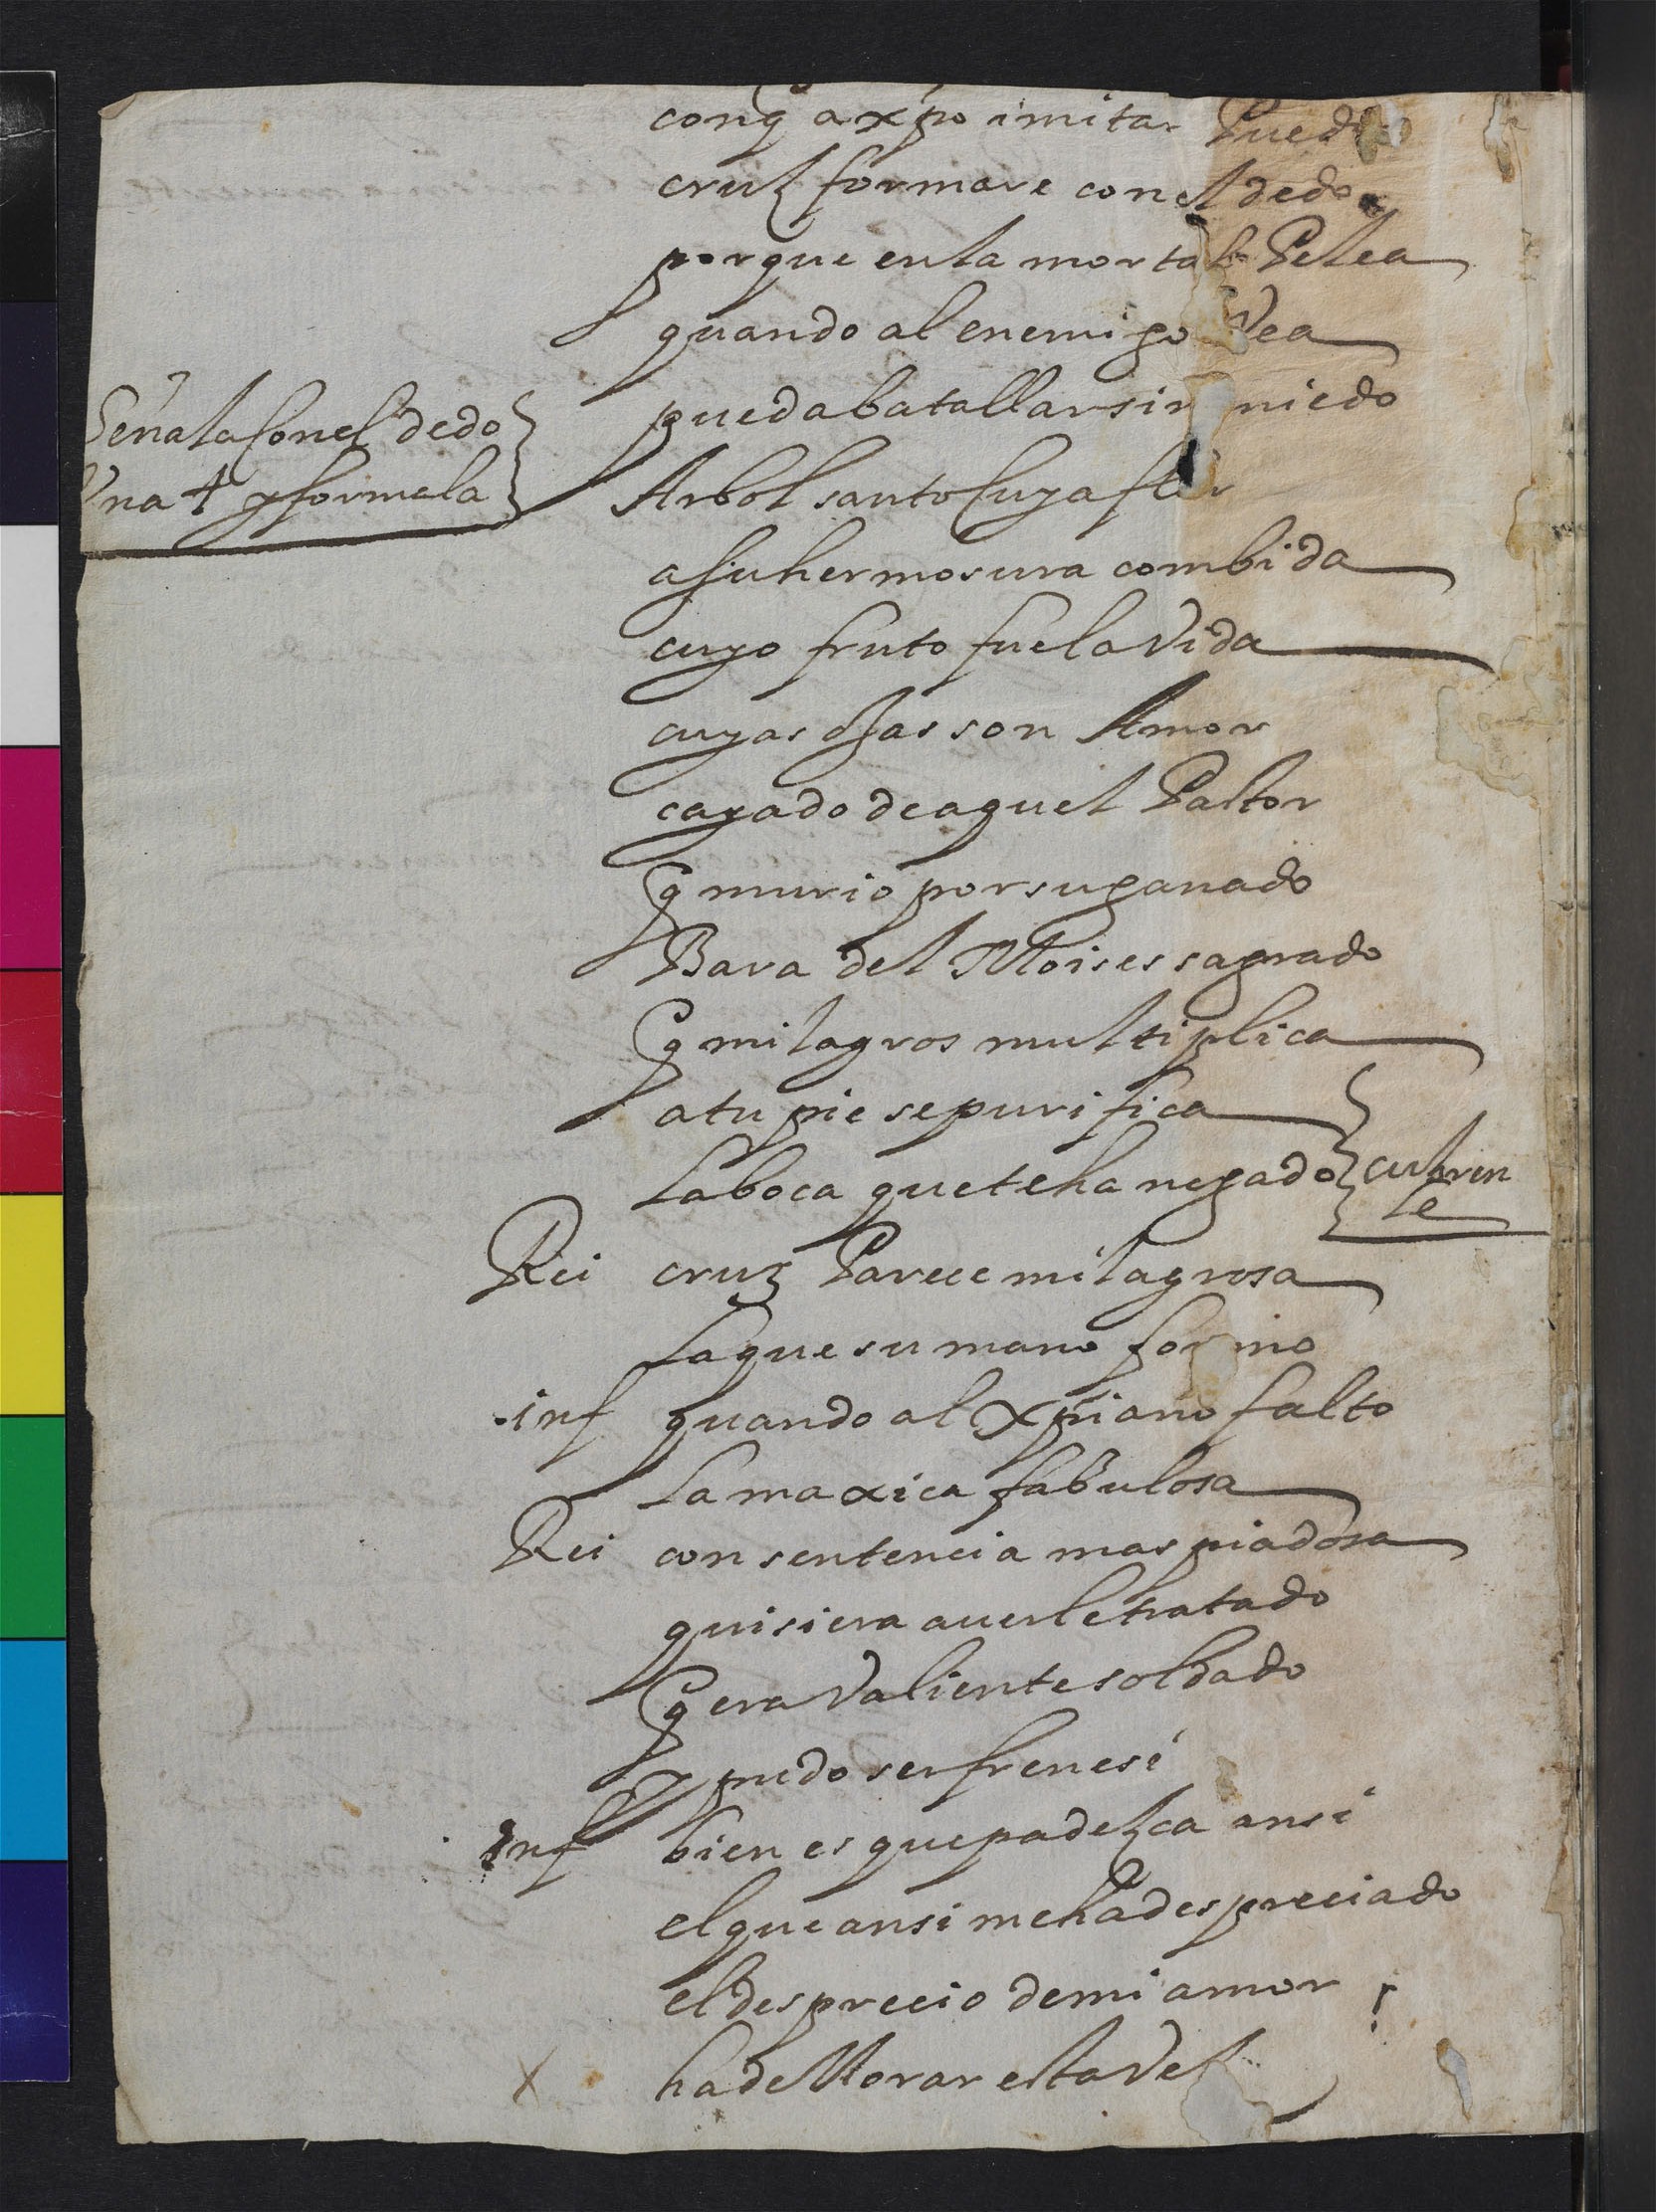 conq̃ a xp̃o imitar Puedo
cruz formare con el dedo
porque en la mortal Pelea
quando al enemigo Vea
pueda batallar sin miedo
Señala con el dedo
Vna + y formela
Arbol santo cuya flor
a su hermosura combida
cuyo fruto fue la Vida
cuyas ojas son Amor
cayado de aquel Pastor
q̃ murio por su ganado
Bara del Moises sagrado
q̃ milagros multiplica
a tu pie se purifica
la boca que te ha negado
cubren
le
Rei cruz Parece milagrosa
la que su mano formo
inf quando al xp̃iano falto
la maxica fabulosa
Rei con sentencia mas piadosa
quisiera auerle tratado
q̃ era Valiente soldado
y pudo ser frenesi
inf bien es que padezca ansi
el que ansi me ha despreciado
el desprecio de mi amor
ha de llorar esta Vez